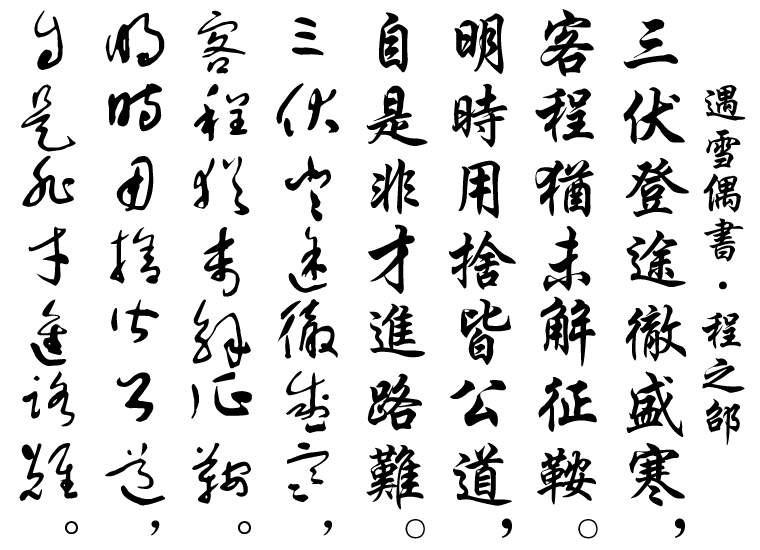 遇雪偶書・程之邵
三伏登途徹盛寒，
客程猶未解征鞍。
明時用捨皆公道，
自是非才進路難。
三伏登途徹盛寒，
客程猶未解征鞍。
明時用捨皆公道，
自是非才進路難。